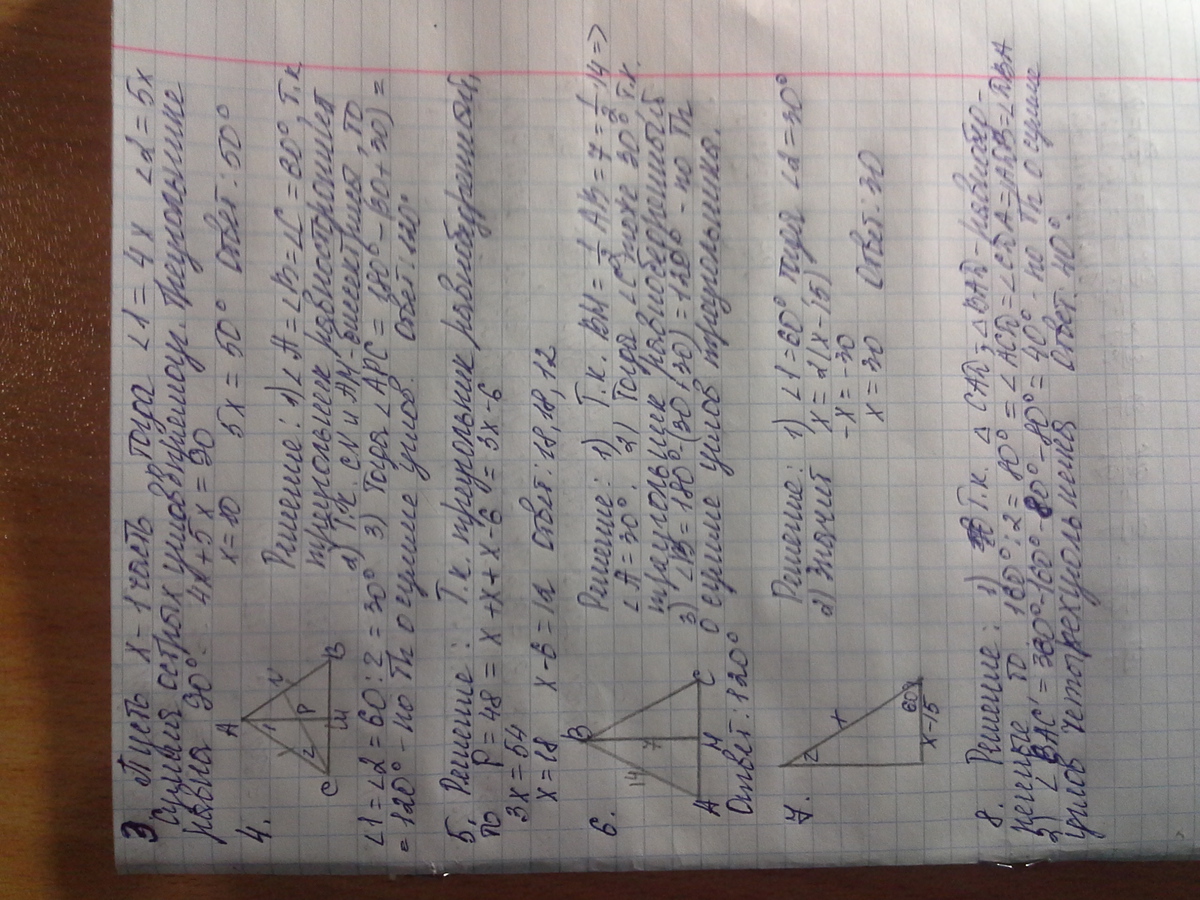 3 Пусть x - 1 часть тогда ∠1 = 4x ∠2 = 5x
Сумма острых углов прямоуг. треугольнике
равна 90° 4x + 5x = 90
x = 10 5x = 50° Ответ: 50°
4.
A
N
1
P
2
C
M
B
Решение: 1) ∠A = ∠B = ∠C = 60°, т.к
треугольник равносторонний
2) т.к CN и AM - биссектрисы, то
∠1 = ∠2 = 60 : 2 = 30° 3) Тогда ∠APC = 180° - (30 + 30) =
= 120° - по Th о сумме углов. Ответ: 120°
5. Решение: Т.к. треугольник равнобедренный,
то P = 48 = x + x + x - 6 = 3x - 6
3x = 54
x = 18 x - 6 = 12 Ответ: 18, 18, 12
6.
B
14
7
A
H
C
Решение: 1) Т.к. BH = 1/2 AB = 7 = 1/2 · 14 =>
∠A = 30°. 2) Тогда ∠C тоже 30° т.к.
треугольник равнобедренный
3) ∠B = 180° - (30 + 30) = 120° - по Th
о сумме углов треугольника.
Ответ: 120°
7.
2
x
60
x-15
Решение: 1) ∠1 = 60° тогда ∠2 = 30°
2) Значит x = 2(x - 15)
-x = -30
x = 30 Ответ: 30
8. Решение: 1) Т.к. △ CAD = △ BAD - равнобед-
ренные то 160° : 2 = 80° = ∠ACD = ∠CDA = ∠ADB = ∠DBA
2) ∠BAC = 360° - 160° - 80° - 80° = 40° - по Th о сумме
углов четырехугольника Ответ: 40°.